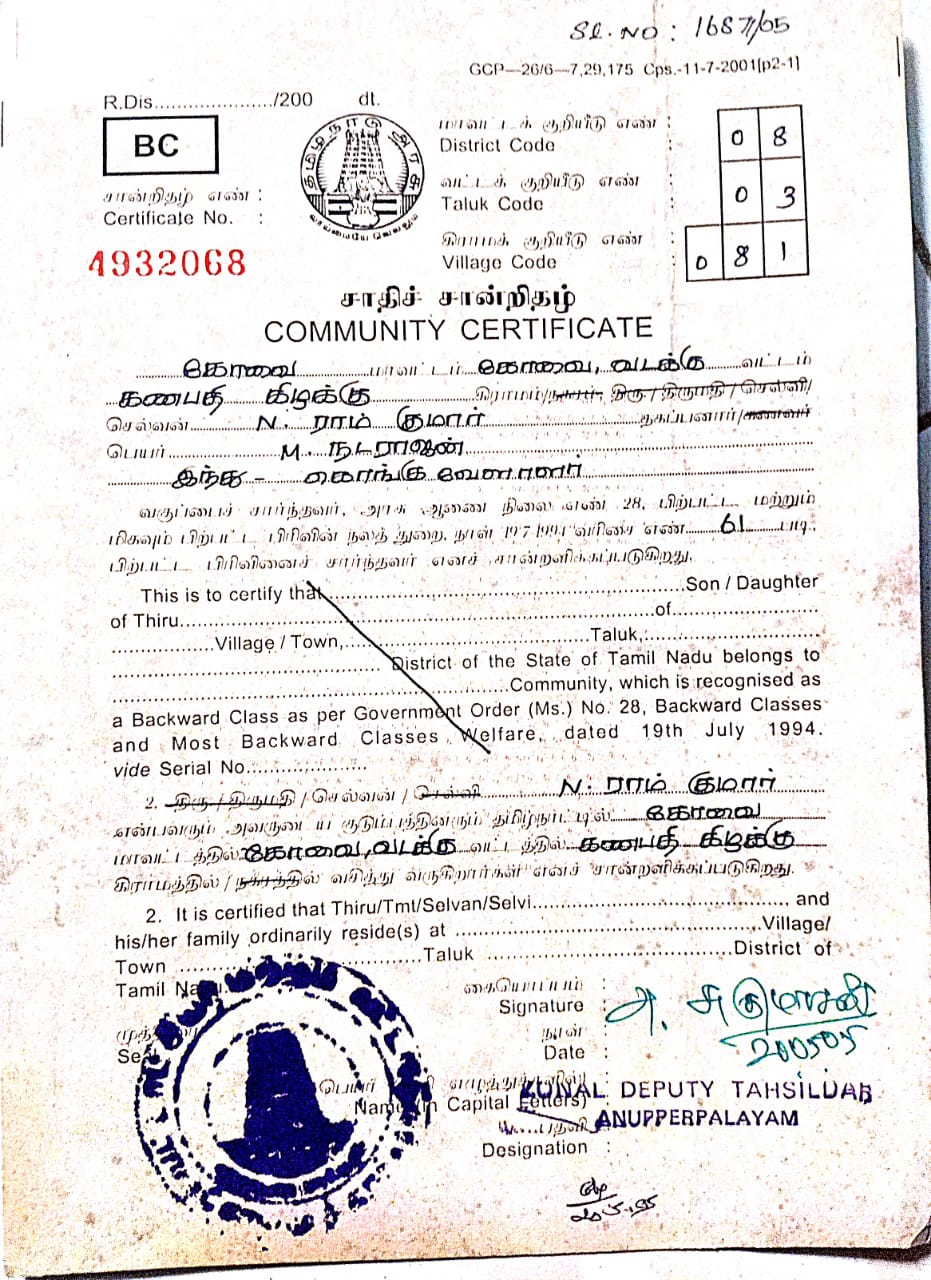 Sl. NO : 1687/05
GCP—26/6—7,29,175 Cps.-11-7-2001[p2-1]
R.Dis...................../200 dt.
BC
தமிழ்நாடு அரசு
வாய்மையே வெல்லும்
மாவட்டக் குறியீடு எண் :
District Code : 0 8
வட்டக் குறியீடு எண் :
Taluk Code : 0 3
கிராமக் குறியீடு எண் :
Village Code : 0 8 1
சான்றிதழ் எண் :
Certificate No. :
4932068
சாதிச் சான்றிதழ்
COMMUNITY CERTIFICATE
கோவை மாவட்டம் கோவை, வடக்கு வட்டம்
கணபதி கிழக்கு கிராமம்/நகரம், திரு / திருமதி / செல்வி/
செல்வன் N. ராம் குமார் தகப்பனார்/கணவர்
பெயர் M. நடராஜன்
இந்து - கொங்கு வேளாளர்
வகுப்பைச் சார்ந்தவர், அரசு ஆணை நிலை எண் 28, பிற்பட்ட மற்றும்
மிகவும் பிற்பட்ட பிரிவின் நலத் துறை, நாள் 19-7-1994 வரிசை எண் 61 படி.
பிற்பட்ட பிரிவினைச் சார்ந்தவர் எனச் சான்றளிக்கப்படுகிறது.
This is to certify that........................................Son / Daughter
of Thiru........................................of....................
....................Village / Town,........................................Taluk,....................
........................................District of the State of Tamil Nadu belongs to
........................................Community, which is recognised as
a Backward Class as per Government Order (Ms.) No. 28, Backward Classes
and Most Backward Classes Welfare, dated 19th July 1994.
vide Serial No....................
2. திரு / திருமதி / செல்வன் / செல்வி N. ராம் குமார்
என்பவரும் அவருடைய குடும்பத்தினரும் தமிழ்நாட்டில் கோவை
மாவட்டத்தில் கோவை, வடக்கு வட்டத்தில் கணபதி கிழக்கு
கிராமத்தில் / நகரத்தில் வசித்து வருகிறார்கள் எனச் சான்றளிக்கப்படுகிறது.
2. It is certified that Thiru/Tmt/Selvan/Selvi........................................ and
his/her family ordinarily reside(s) at ........................................Village/
Town ........................................Taluk ........................................District of
Tamil Nadu.
கையொப்பம் :
Signature :
நாள்
Date : 20/05/05
பெயர் எழுத்துக்களில்)
Name (in Capital Letters) :
ZONAL DEPUTY TAHSILDAR
ANUPPERPALAYAM
பதவி
Designation :